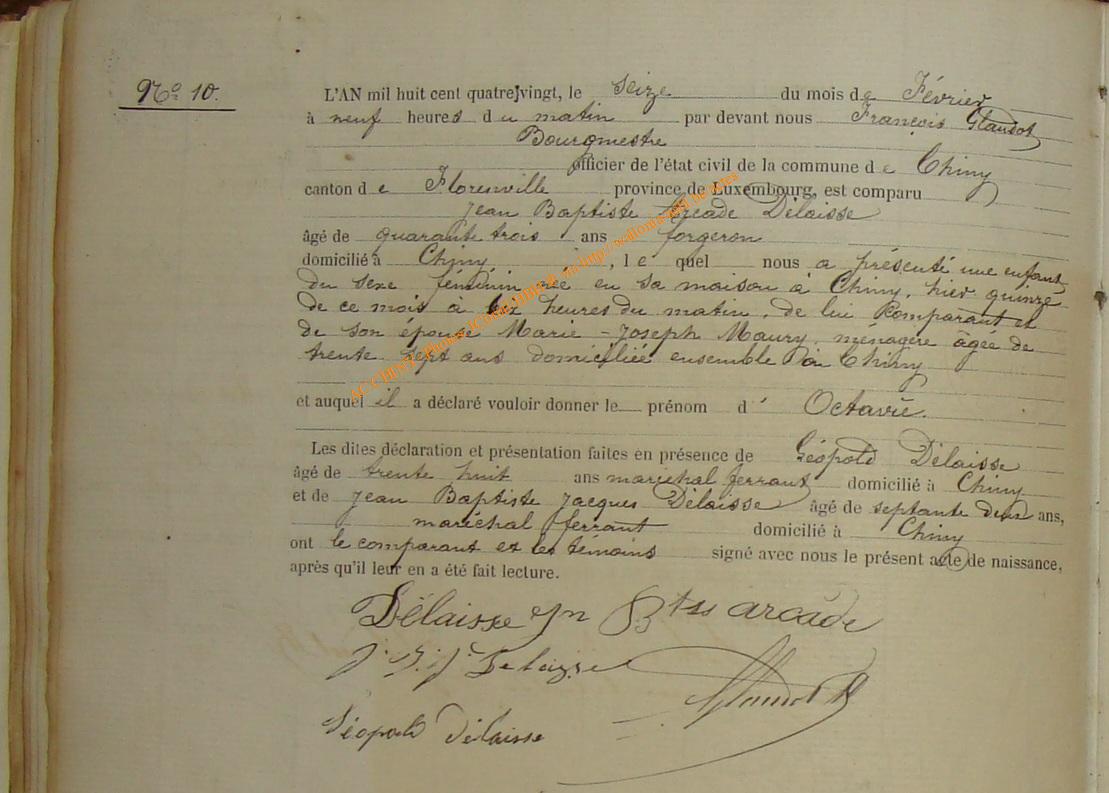 No 10.
L'AN mil huit cent quatre-vingt, le seize du mois de Février
à neuf heures du matin par devant nous François Glaudot
Bourgmestre
officier de l'état civil de la commune de Chiny
canton de Florenville province de Luxembourg, est comparu
Jean Baptiste Arcade Délaisse
âgé de quarante trois ans forgeron
domicilié à Chiny, le quel nous a présenté une enfant
du sexe féminin née en sa maison à Chiny, hier quinze
de ce mois à heures du matin, de lui comparant et
de son épouse Marie-Joseph Maury, ménagère âgée de
trente sept ans domiciliée ensemble à Chiny
et auquel il a déclaré vouloir donner le prénom d' Octavie.
Les dites déclaration et présentation faites en présence de Léopold Délaisse
âgé de trente huit ans maréchal ferrant domicilié à Chiny
et de Jean Baptiste Jacques Délaisse âgé de septante deux ans,
maréchal ferrant domicilié à Chiny
ont le comparant et les témoins signé avec nous le présent acte de naissance,
après qu'il leur en a été fait lecture.
Délaisse Jn Btss arcade
J. B. J. Delaisse
Glaudot F
Léopold Délaisse